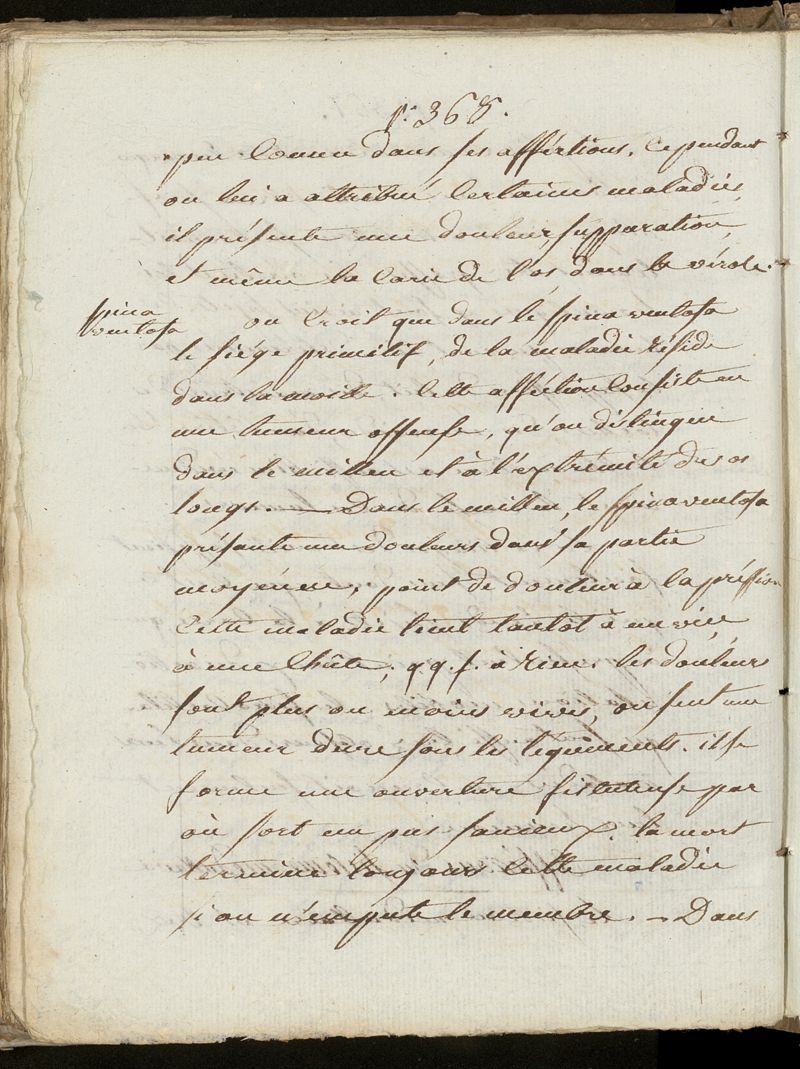 p. 368.
peu connu dans ses afféctions. cependant
on lui a attribué certaines maladies,
il présente une douleur, supparation,
et même la carie de l'os dans la vérole.
spina
ventosa
on croit que dans le spina ventosa
le siége primitif, de la maladie réside
dans la moelle. cette afféction consiste en
une tumeur osseuse, qu'on distingue
dans le millieu et à l'extrémité des os
longs. — Dans le millieu, le spina ventosa
présante une douleurs dans sa partie
moyénne, point de douleur à la préssion
cette maladie tient tantôt à un vice
à une chûte, qq. f. à rien. les douleurs
sont plus ou moins vives, on sent une
tumeur dure sous les téguments. il se
forme une ouverture fistuleuse par
où sort un pus sanieux. la mort
termine toujours cette maladie
si on n'empute le membre. — Dans